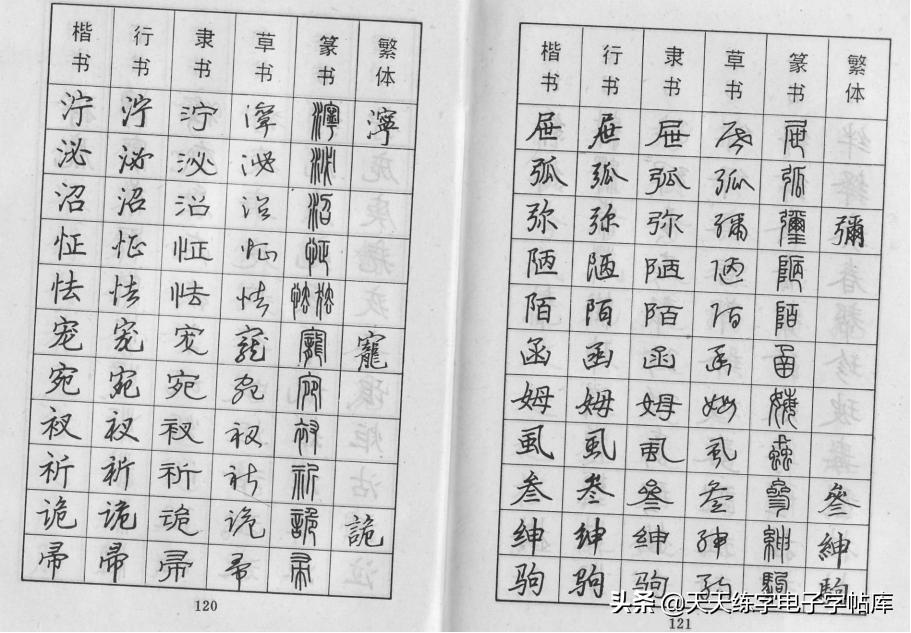 楷书 行书 隶书 草书 篆书 繁体
泞 泞 泞 濘 濘 濘
泌 泌 泌 泌 泌
沼 沼 沼 沼 沼
怔 怔 怔 怔 怔
怯 怯 怯 怯 怯
宠 宠 宠 寵 寵 寵
宛 宛 宛 宛 宛
衩 衩 衩 衩 衩
祈 祈 祈 祈 祈
诡 诡 诡 诡 詭 詭
帚 帚 帚 帚 帚
120
楷书 行书 隶书 草书 篆书 繁体
屉 屉 屉 屉 屉
弧 弧 弧 弧 弧
弥 弥 弥 彌 彌 彌
陋 陋 陋 陋 陋
陌 陌 陌 陌 陌
函 函 函 函 函
姆 姆 姆 姆
虱 虱 虱 虱 蝨
叁 叁 叄 叁 叄
绅 绅 紳 绅 紳 紳
驹 驹 驹 驹 駒 駒
121
头条 @天天练字电子字帖库